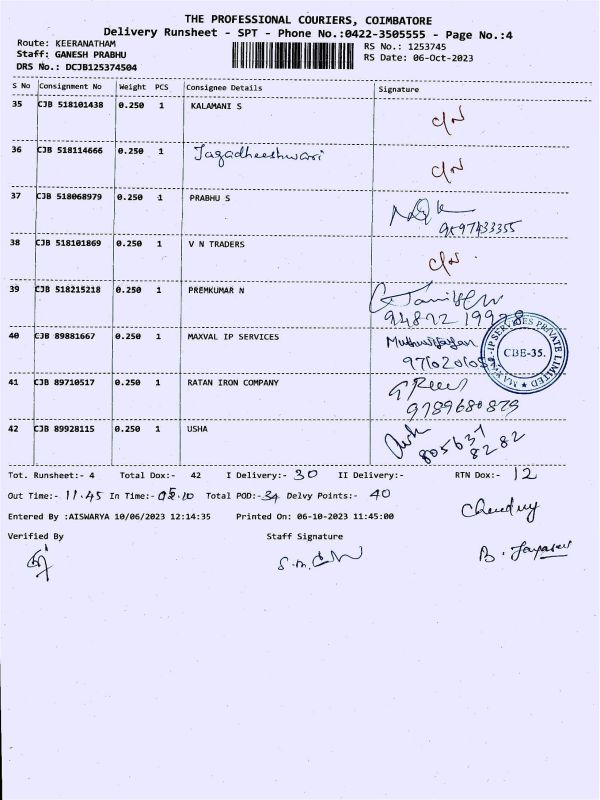 THE PROFESSIONAL COURIERS, COIMBATORE
Delivery Runsheet - SPT - Phone No.:0422-3505555 - Page No.:4
Route: KEERANATHAM
RS No.: 1253745
Staff: GANESH PRABHU
RS Date: 06-Oct-2023
DRS No.: DCJB125374504
S No Consignment No Weight PCS Consignee Details Signature
35 CJB 518101438 0.250 1 KALAMANI S C/N
36 CJB 518114666 0.250 1 Jagadheeshwari C/N
37 CJB 518068979 0.250 1 PRABHU S
9597433355
38 CJB 518101869 0.250 1 V N TRADERS C/N
39 CJB 518215218 0.250 1 PREMKUMAR N
40 CJB 89881667 0.250 1 MAXVAL IP SERVICES
MAXVAL-IP SERVICES PRIVATE LIMITED
CBE-35.
41 CJB 89710517 0.250 1 RATAN IRON COMPANY
9789680879
42 CJB 89928115 0.250 1 USHA
805637
8282
Tot. Runsheet:- 4 Total Dox:- 42 I Delivery:- 30 II Delivery:- RTN Dox:- 12
Out Time:- 11.45 In Time:- 05.10 Total POD:- 34 Delvy Points:- 40
Entered By :AISWARYA 10/06/2023 12:14:35 Printed On: 06-10-2023 11:45:00
Verified By Staff Signature